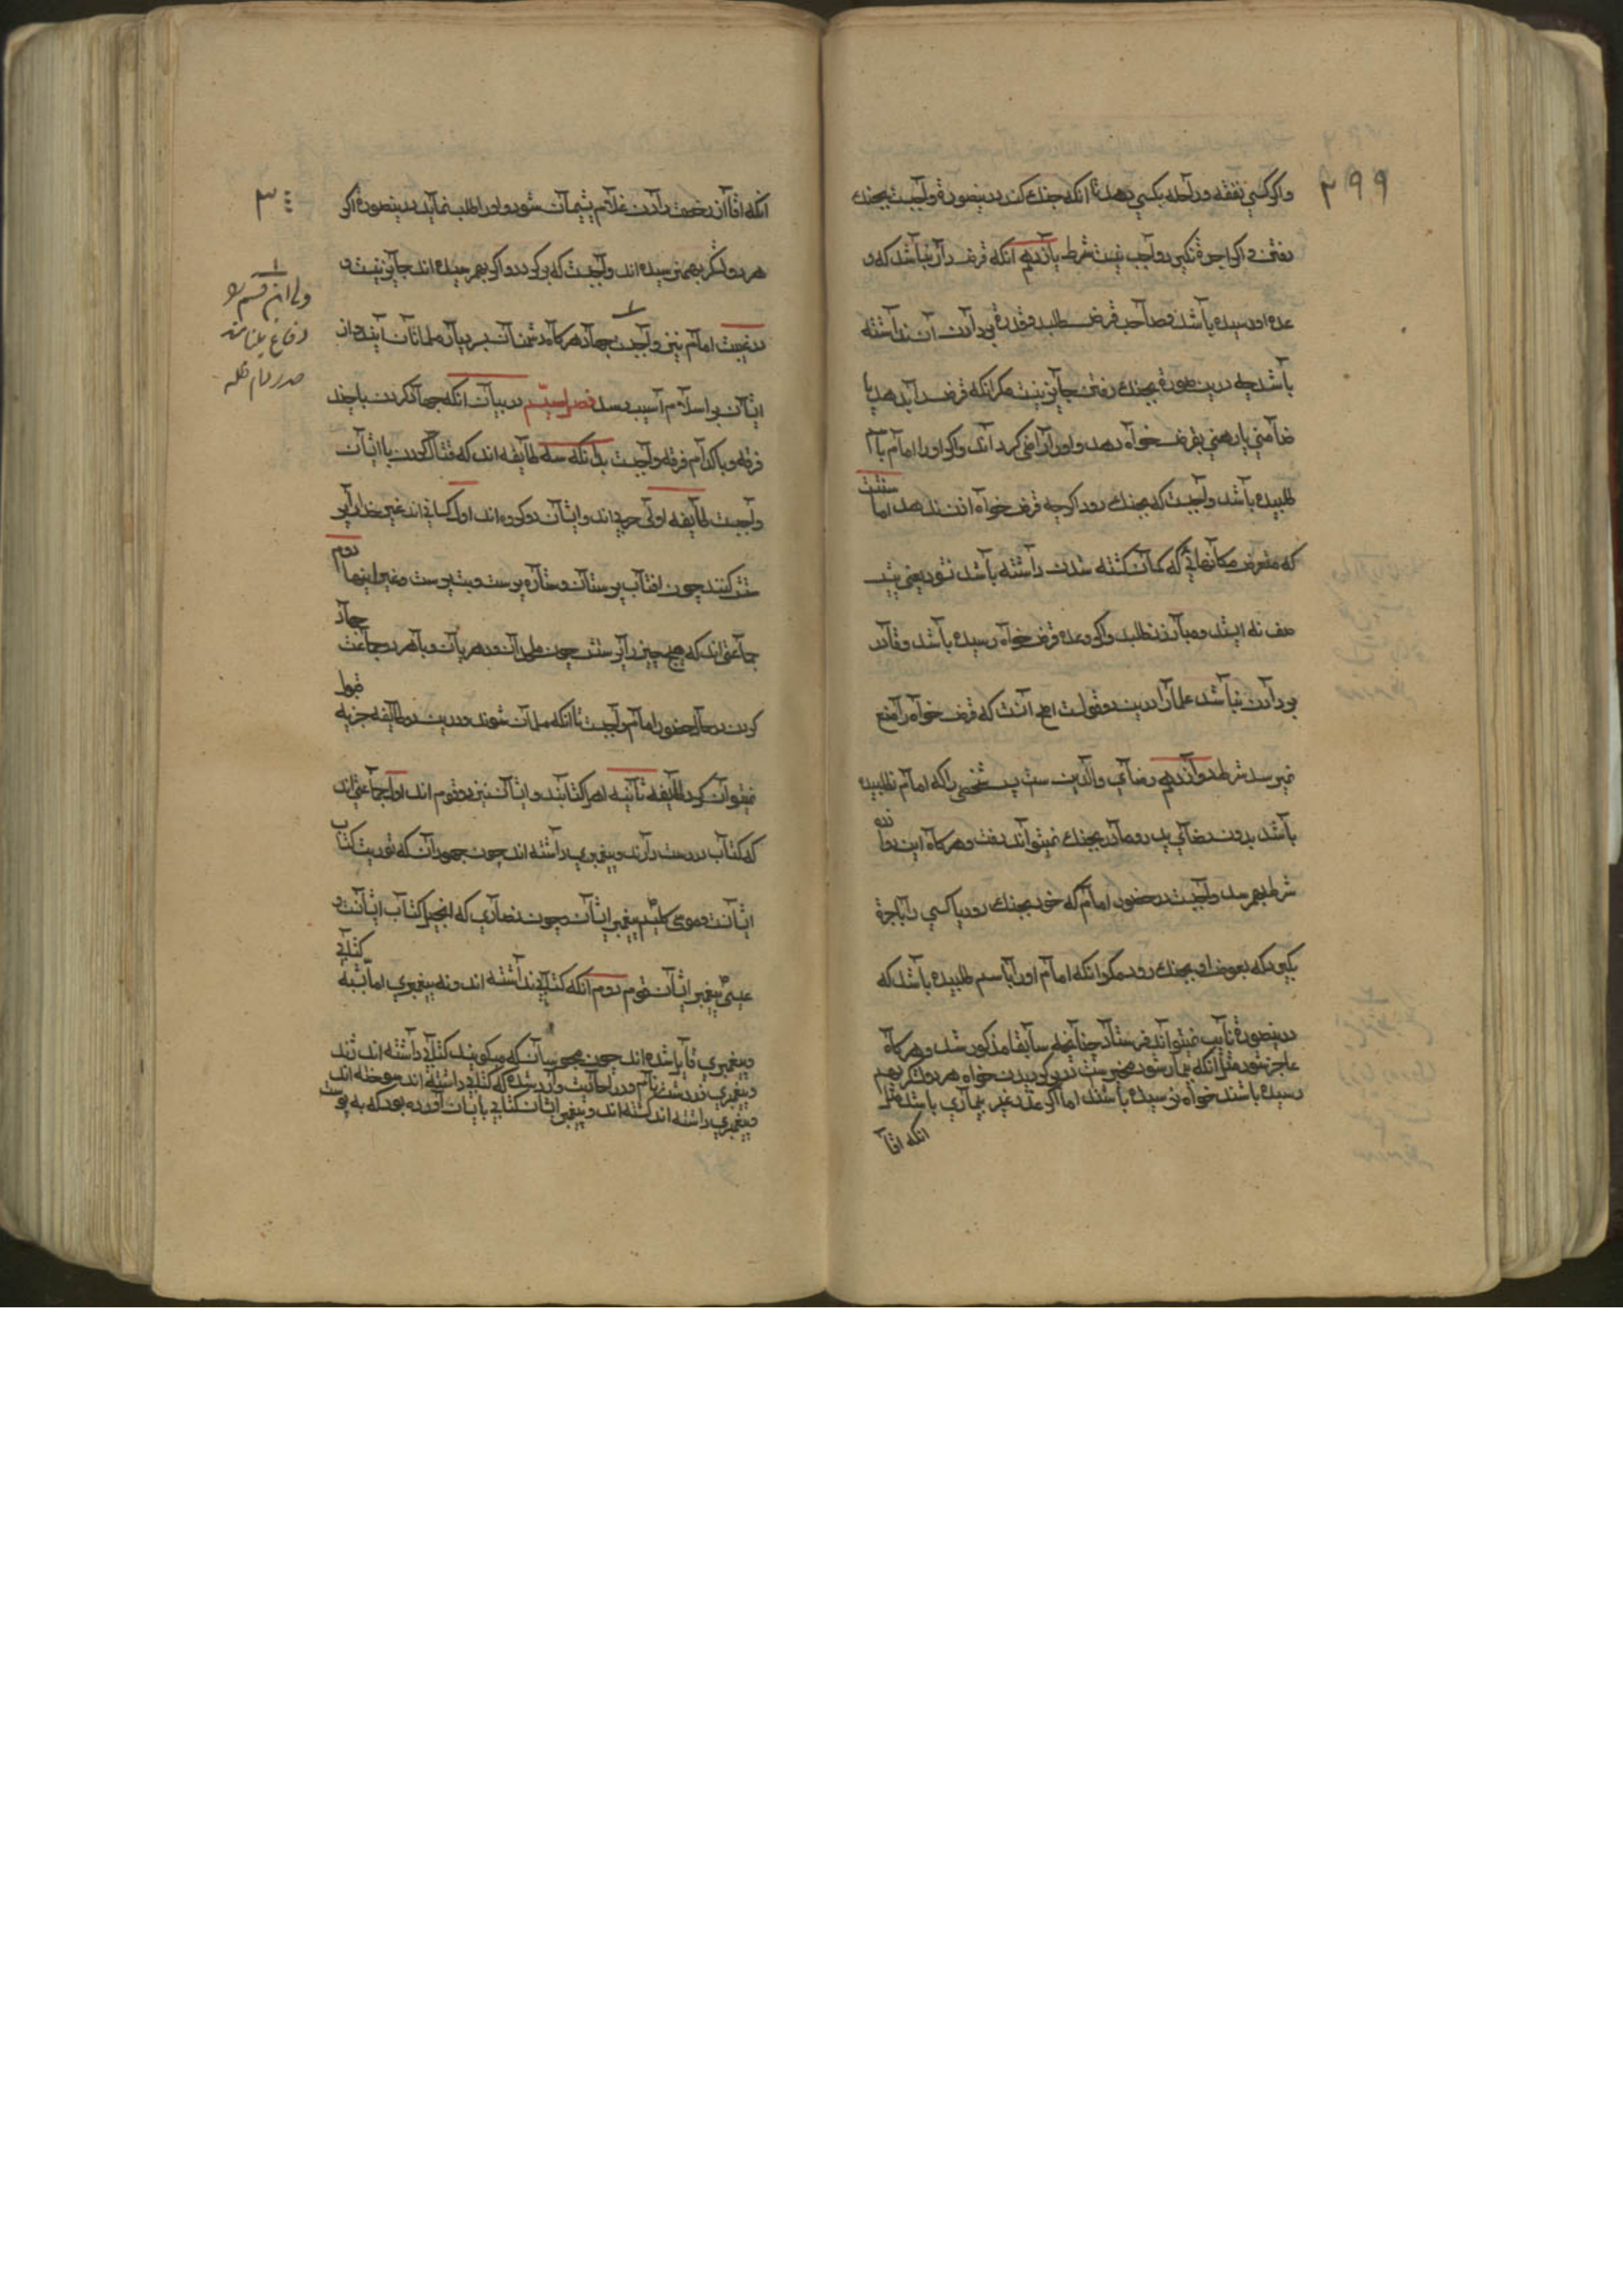 ۲۹۹
واکر کسی نفقه و راحله بکسی بدهد تا انکه جنك کند درینصورة واجبست بجنك
رفتن و اکر اجرة نکیرد واجب نیست شرط یازدهم انکه قرض دار نباشد که و
عده او رسیده باشد و صاحب قرض طلبد و قدرة بردادن آن نداشته
باشد چه درین صورة بجنك رفتن جایز نیست مکر انکه قرض را بدهد یا
ضامنی یا رهنی بقرض خواه بدهد و او را راضی کرداند و اکر او را امام با
طلبیده باشد واجبست که بجنك رود اکرچه قرض خواه اذن ندهد اما سنتست
که متعرض مکانهائی که کمان کشته شدن داشته باشد نشود یعنی پیش
صف نه ایستد و مبارز نطلبد و اکر وعده قرض خواه رسیده باشد و قادر
بردادن نباشد علما را درین دو قولست اصح آنست که قرض خواه را منع
نمیرسد شرط دوازدهم رضای والدین ست پس شخصی را که امام نطلبیده
باشد بدون رضای پدر و مادر بجنك نمیتواند رفت و هرکاه این دوازده
شرط بهم رسد واجبست در حضور امام که خود بجنك رود یا کسی را باجرة
بکیرد که بعوض او بجنك رود مکر انکه امام او را باسم طلبیده باشد که
درینصورة نایب نمیتواند فرستاد چنانچه سابقا مذکور شد و هرکاه
عاجز شود مثل انکه بیمار شود مخیرست در برکردیدن خواه هر دو لشکر بهم
رسیده باشند خواه نرسیده باشند اما اکر عذر غیر بیماری باشد مثل
انکه اقا
۳۰۰
انکه اقا از رخصت دادن غلام پشیمان شود و او را طلب نماید درینصورة اکر
هر دو لشکر بهم نرسیده اند واجبست که برکردد و اکر بهم رسیده اند جایز نیست و
در غیبت امام نیز واجبست جهاد هرکاه دشمنان بر دیار مسلمانان آیند و از
ایشان بر اسلام آسیب رسد فصل سیم در بیان انکه جهاد کردن با چند
فرقه و با کدام فرقه واجبست بدانکه سه طایفه اند که قتال کردن با ایشان
واجبست طایفه اولی حربی اند و ایشان دو کروه اند اول کسانی اند غیر خدا را پر
ستش کنند چون افتاب پرستان و ستاره پرست و بت پرست و غیر اینها دوم
جماعتی اند که هیچ چیز را پرستش چون ملحدان و دهریان و با هر دو جماعت جهاد
کردن در حال حضور امام واجبست تا انکه مسلمان شوند و درین دو طایفه جزیه قبول
نمیتوان کرد طایفه ثانیه اهل کتابند و ایشان نیز دو قوم اند اول جماعتی اند
که کتاب درست دارند و پیغمبری داشته اند چون جهودان که توریت کتاب
ایشانست و موسی کلیم پیغمبر ایشان و چون نصاری که انجیل کتاب ایشانست و
عیسی پیغمبر ایشان قوم دوم انکه کتابی نداشته اند و نه پیغمبری اما شبه کتابی
و پیغمبری قایل شده اند چون مجوسیان که میکویند کتابی داشته اند ژند
و پیغمبری زردشت نام و در احادیث وارد شده که کتابی داشته اند سوخته اند
و پیغمبری داشته اند کشته اند و پیغمبر ایشان کتابی بایشان آورده بود که به پوست
ولی این قسم را
دفاع
صدر دام ظله